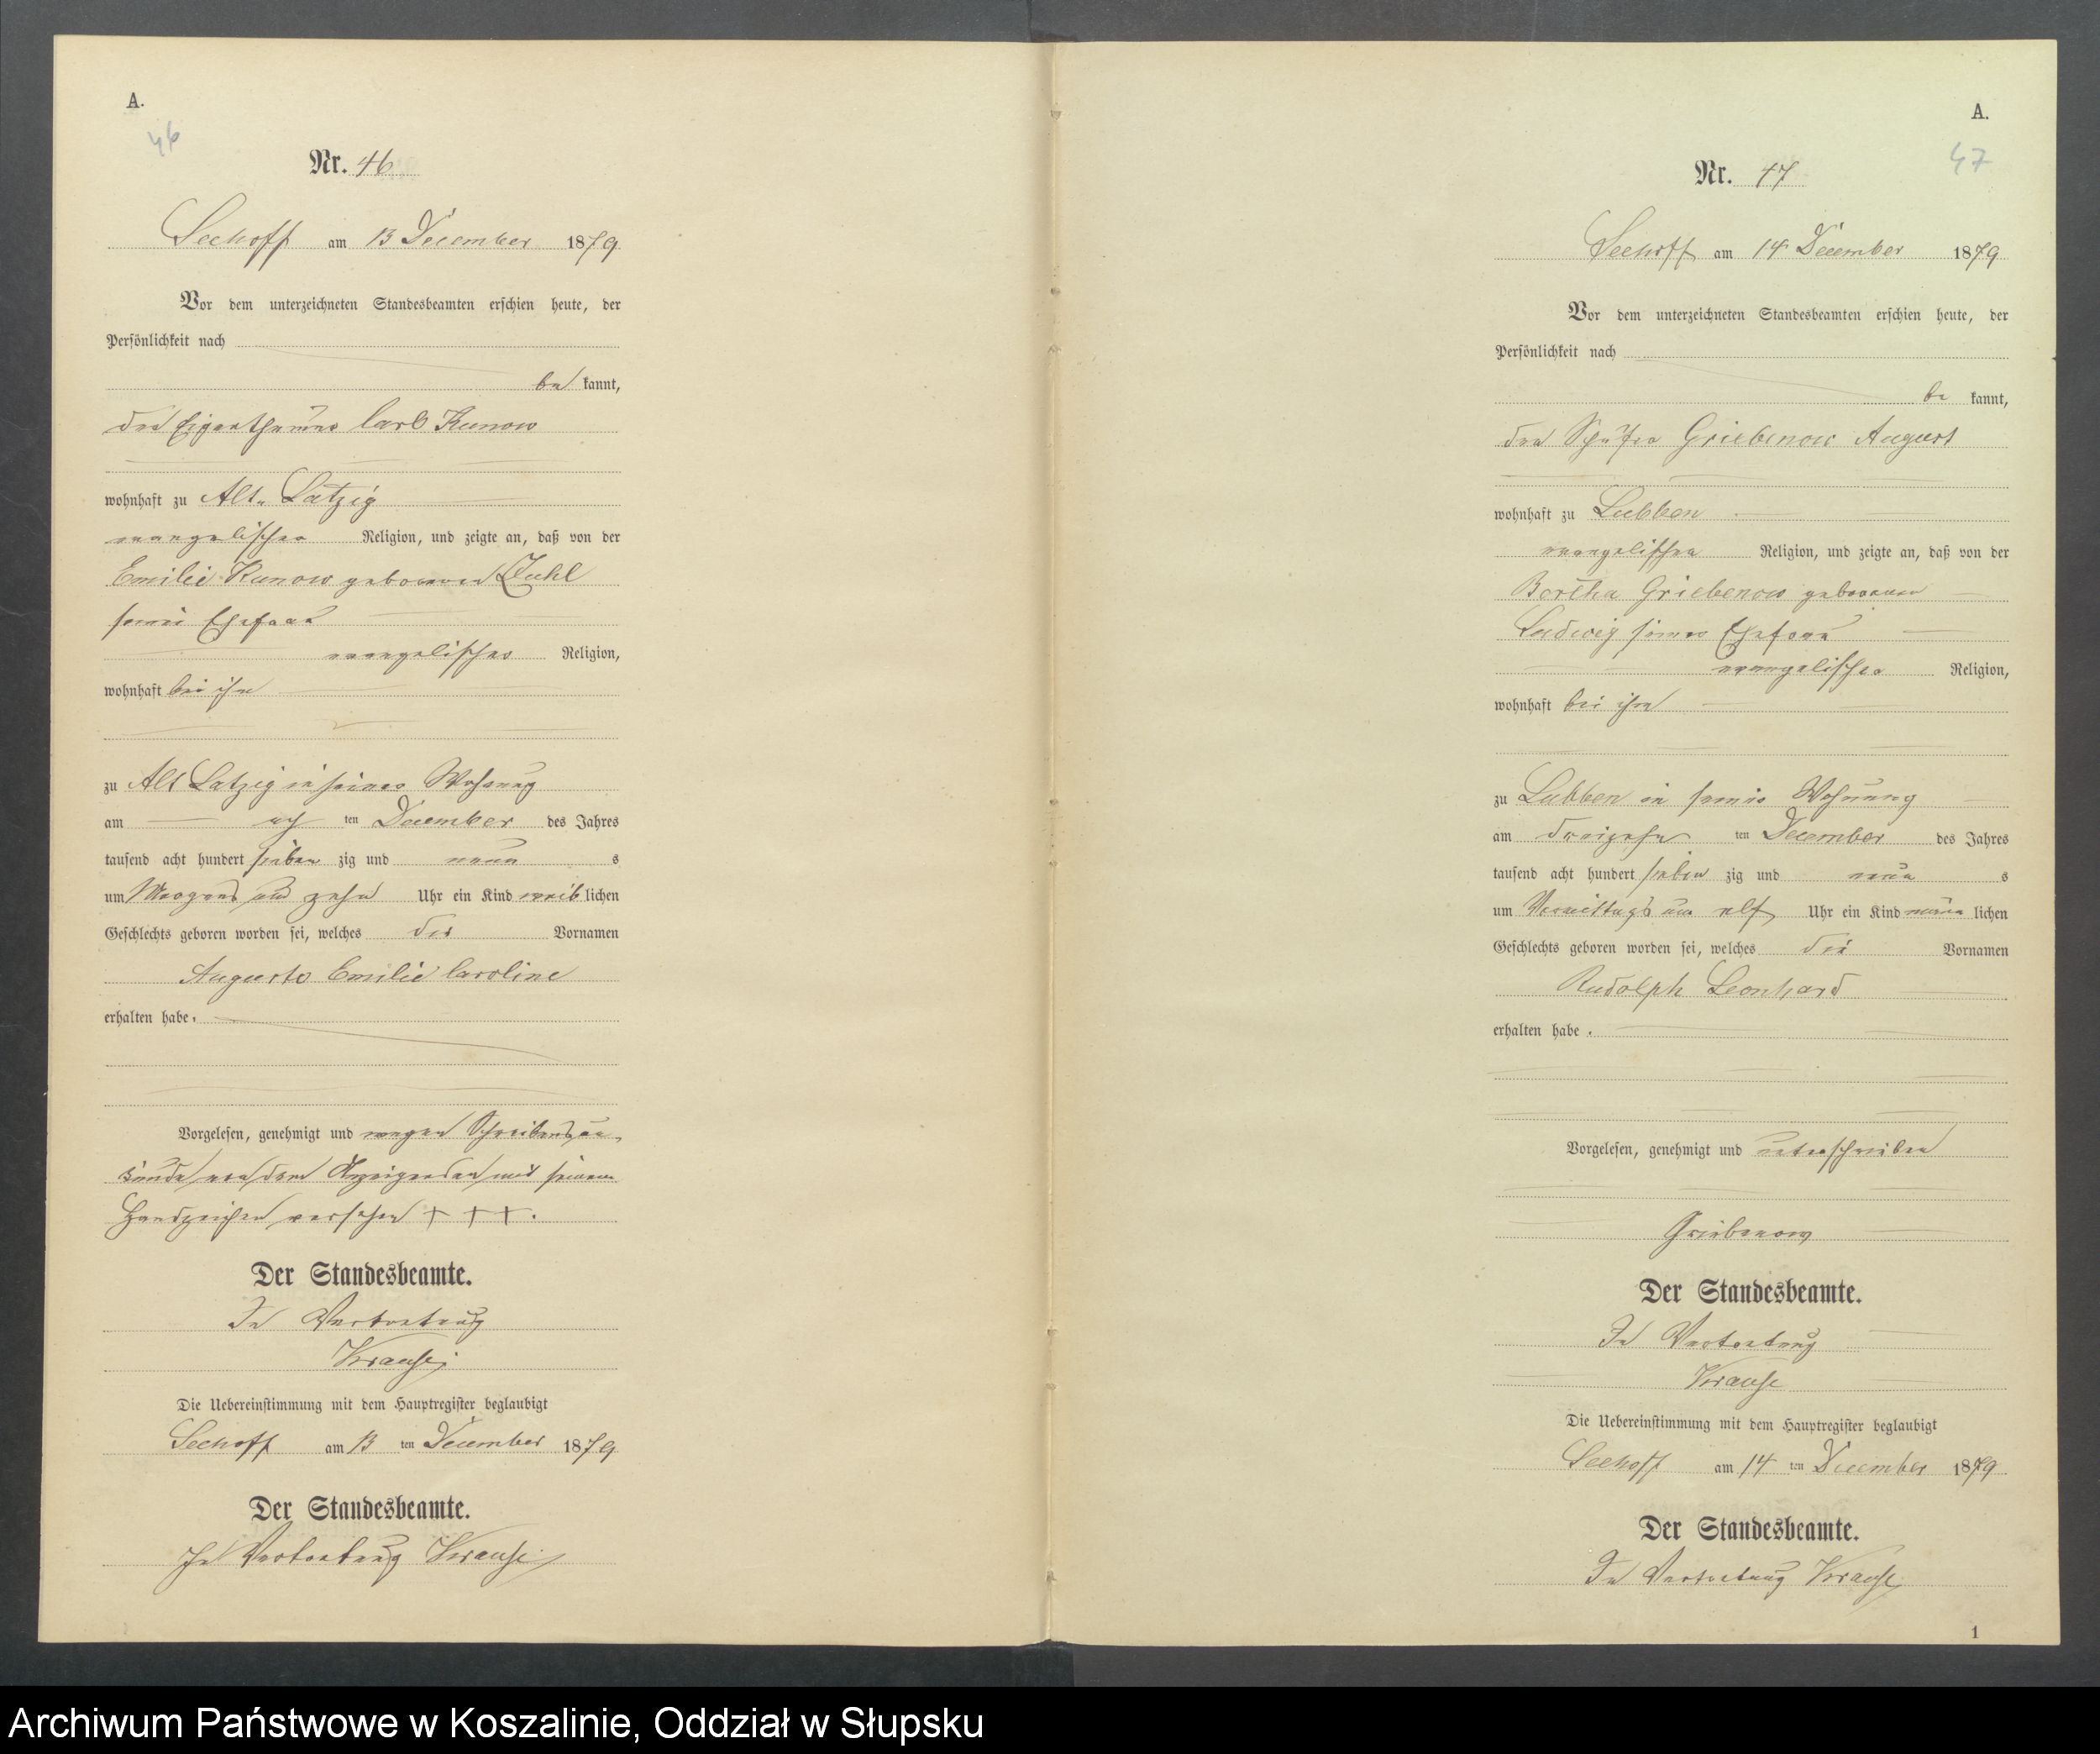 A.
46
Nr. 46
Seehoff am 13 December 1879
Vor dem unterzeichneten Standesbeamten erschien heute, der
Persönlichkeit nach
be kannt,
der Eigenthümer Carl Kunow
wohnhaft zu Alt-Latzig
evangelischer Religion, und zeigte an, daß von der
Emilie Kunow geborenen
seiner Ehefrau
evangelischer Religion,
wohnhaft bei ihm
zu Alt Latzig in seiner Wohnung
am ten December des Jahres
tausend acht hundert sieben zig und neun s
um Morgens um zehn Uhr ein Kind weib lichen
Geschlechts geboren worden sei, welches die Vornamen
Auguste Emilie Caroline
erhalten habe.
Vorgelesen, genehmigt und wegen Schreibensun-
kunde von dem Anzeigenden mit seinem
Handzeichen versehen + + +.
Der Standesbeamte.
In Vertretung
Krause
Die Uebereinstimmung mit dem Hauptregister beglaubigt
Seehoff am 13 ten December 1879
Der Standesbeamte.
In Vertretung Krause
A.
47
Nr. 47
Seehoff am 14 December 1879
Vor dem unterzeichneten Standesbeamten erschien heute, der
Persönlichkeit nach
be kannt,
der Schäfer Griebenow August
wohnhaft zu Lubben
evangelischer Religion, und zeigte an, daß von der
Bertha Griebenow geborenen
Ludwig seiner Ehefrau
evangelischer Religion,
wohnhaft bei ihm
zu Lubben in seiner Wohnung
am dreizehn ten December des Jahres
tausend acht hundert sieben zig und neun s
um Vormittags um elf Uhr ein Kind männ lichen
Geschlechts geboren worden sei, welches die Vornamen
Rudolph Leonhard
erhalten habe.
Vorgelesen, genehmigt und unterschrieben
Griebenow
Der Standesbeamte.
In Vertretung
Krause
Die Uebereinstimmung mit dem Hauptregister beglaubigt
Seehoff am 14 ten December 1879
Der Standesbeamte.
In Vertretung Krause
1
Archiwum Państwowe w Koszalinie, Oddział w Słupsku